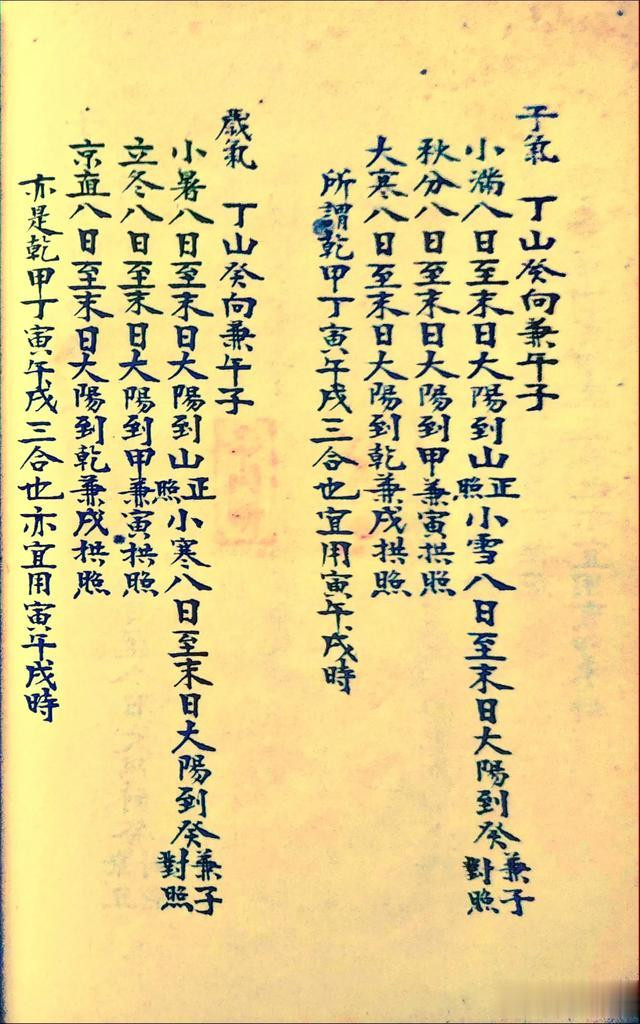 子氣　丁山癸向兼午子
小滿八日至末日大陽到山正照小雪八日至末日大陽到癸兼子對照
秋分八日至末日大陽到甲兼寅拱照
大寒八日至末日大陽到乾兼戌拱照
所謂乾甲丁寅午戌三合也宜用寅午戌時
歲氣　丁山癸向兼午子
小暑八日至末日大陽到山正照小寒八日至末日大陽到癸兼子對照
立冬八日至末日大陽到甲兼寅拱照
京直八日至末日大陽到乾兼戌拱照
亦是乾甲丁寅午戌三合也亦宜用寅午戌時